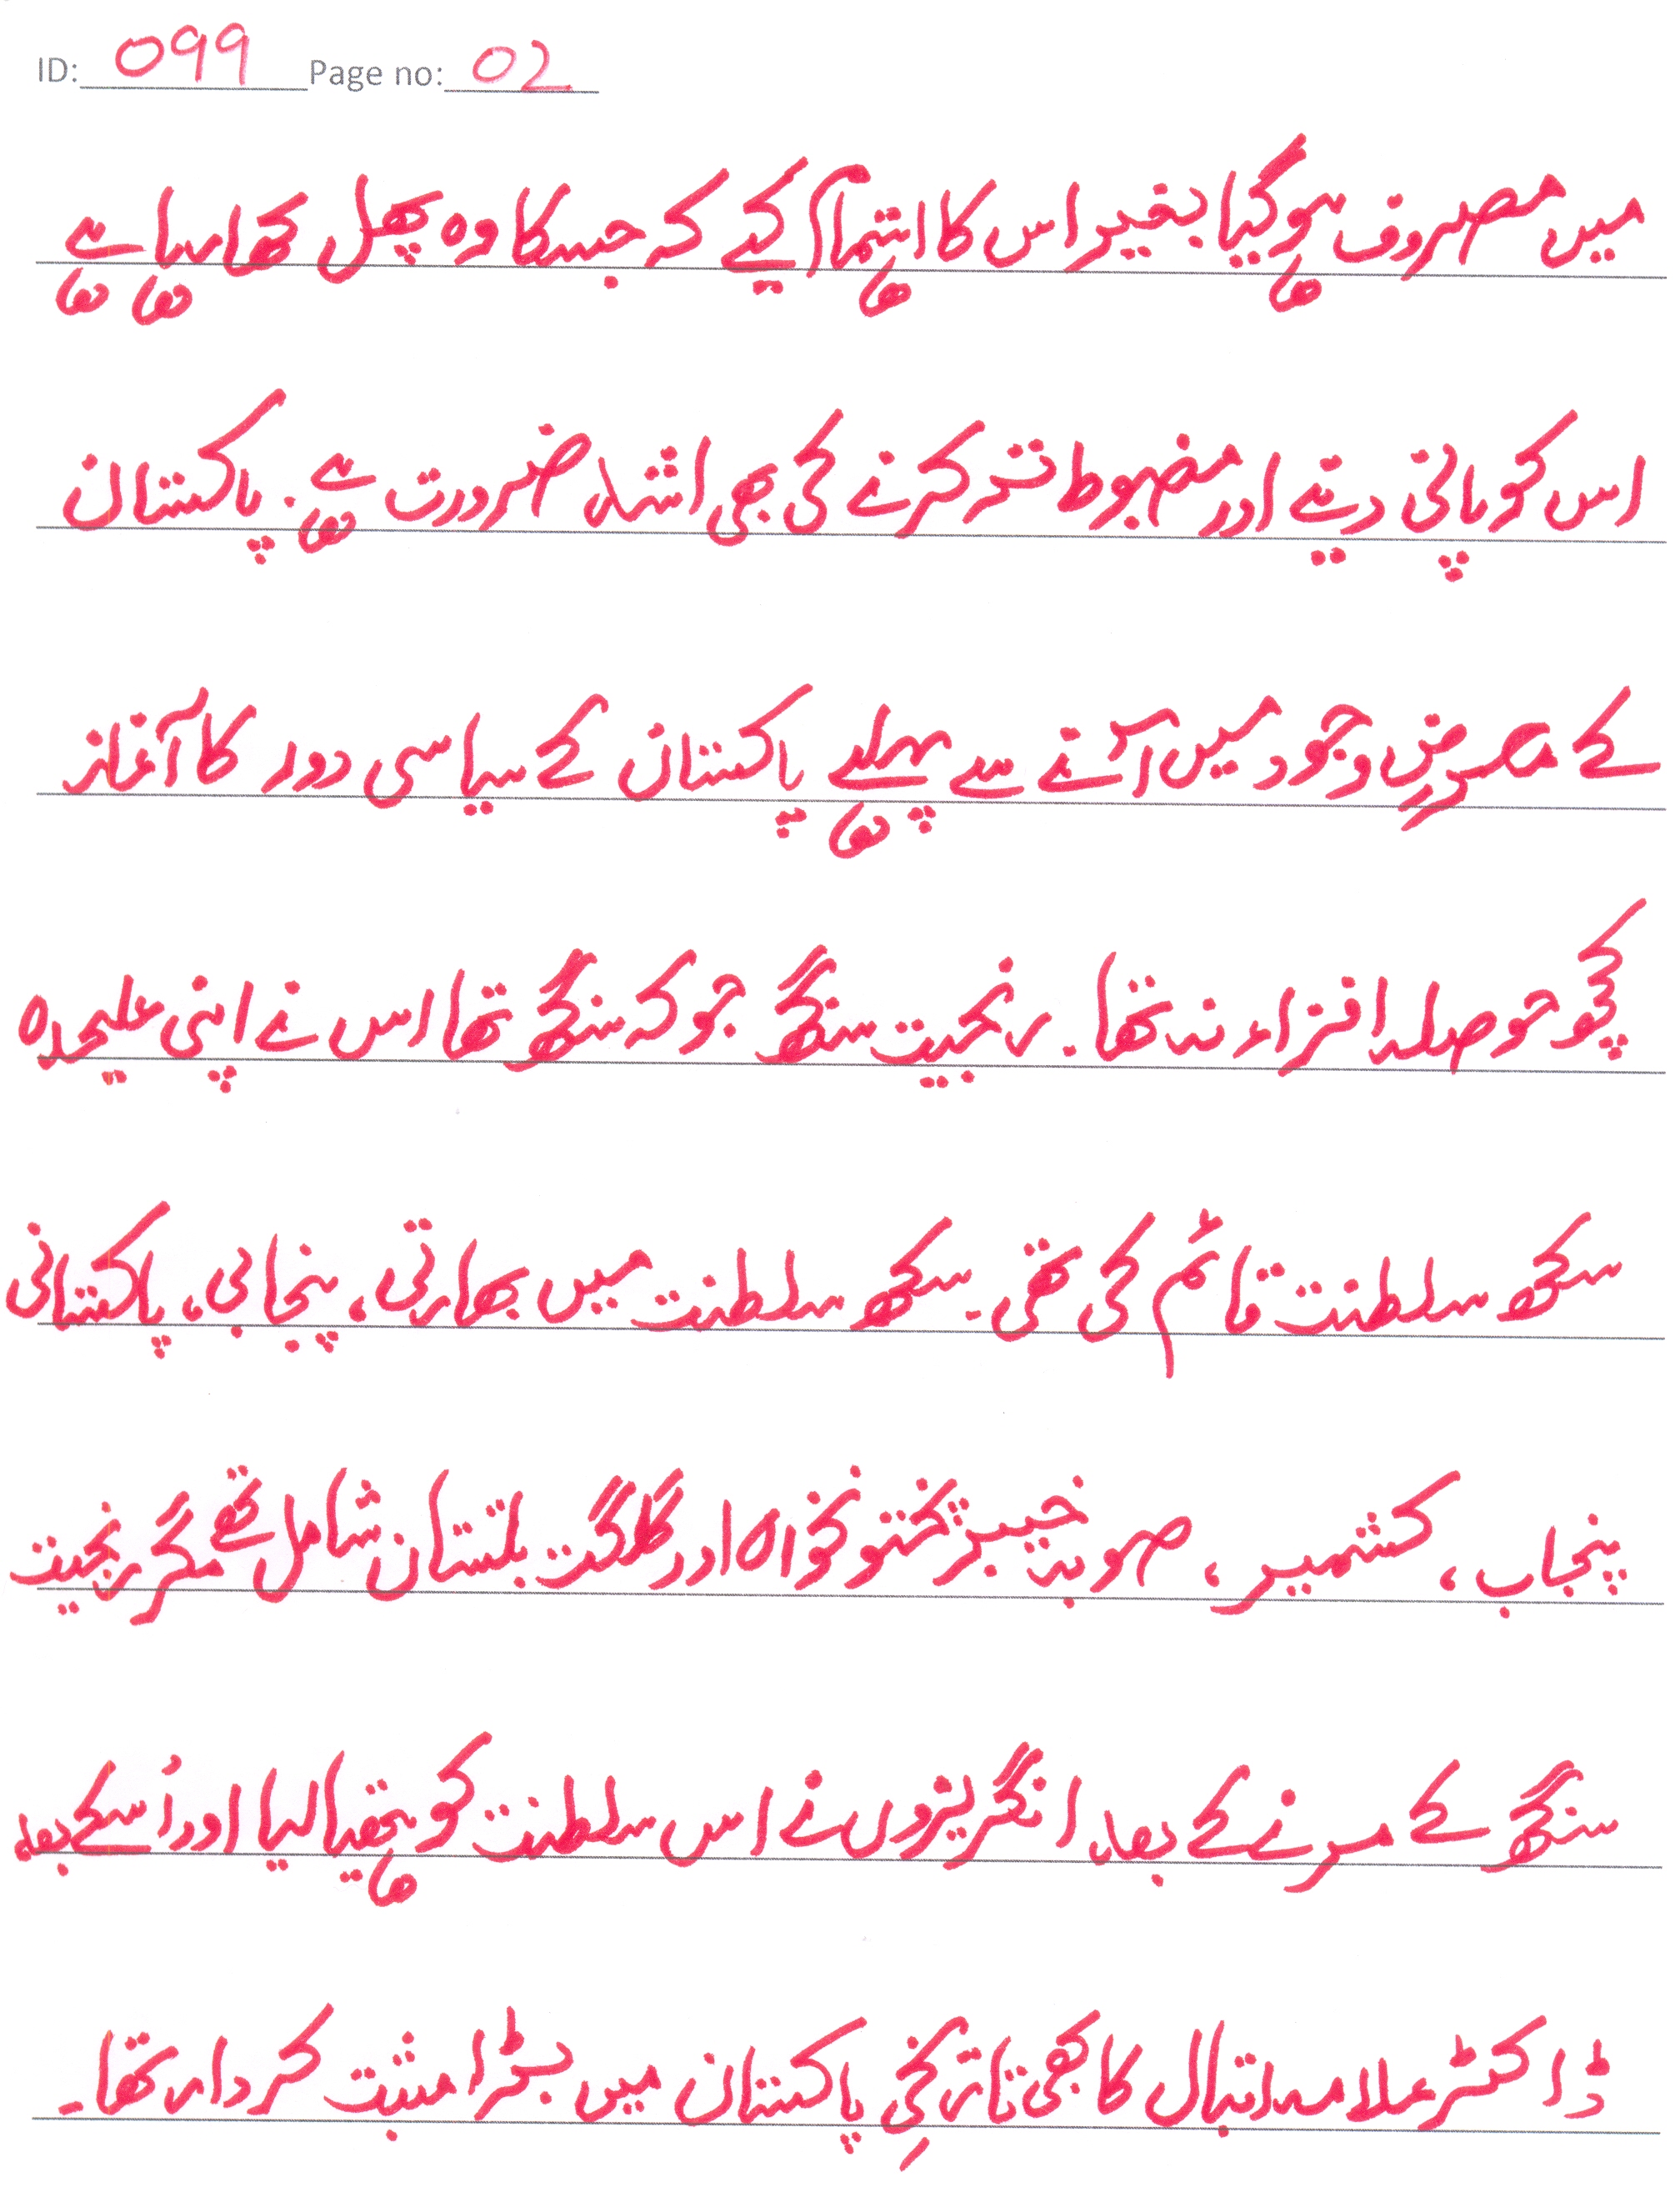 ID: 099 Page no: 02
میں مصروف ہوگیا بغیر اس کا اہتمام کیے کہ جسکا وہ پھل کھا رہا ہے
اس کو پانی دینے اور مضبوط تر کرنے کی بھی اشد ضرورت ہے۔ پاکستان
کے معرضِ وجود میں آنے سے پہلے پاکستان کے سیاسی دور کا آغاز
کچھ حوصلہ افزاء نہ تھا۔ رنجیت سنگھ جو کہ سنگھ تھا اس نے اپنی علیحدہ
سکھ سلطنت قائم کی تھی۔ سکھ سلطنت میں بھارتی، پنجابی، پاکستانی
پنجاب، کشمیر، صوبہ خیبر پختونخواہ اور گلگت بلتستان شامل تھے مگر رنجیت
سنگھ کے مرنے کے بعد انگریزوں نے اس سلطنت کو ہتھیا لیا اور اُسکے بعد
ڈاکٹر علامہ اقبال کا بھی تاریخِ پاکستان میں بڑا مثبت کردار تھا۔